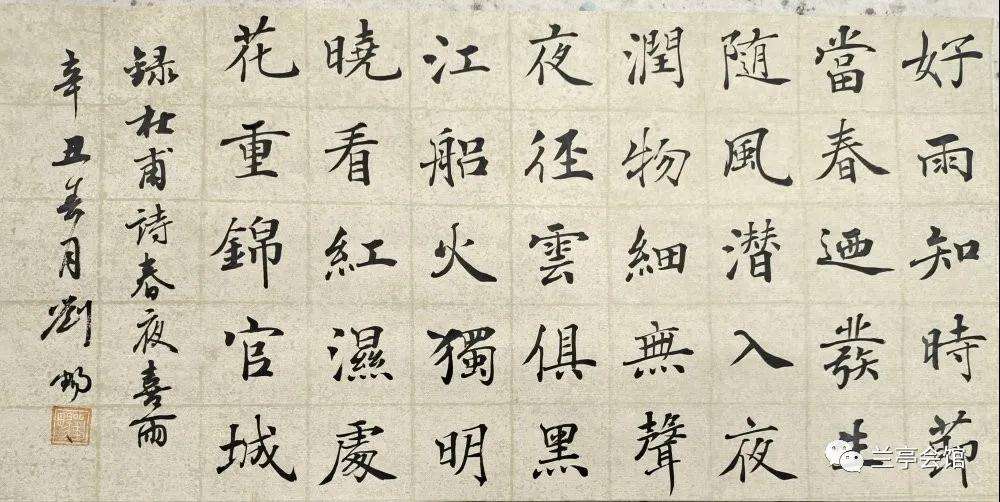 好雨知時節
當春迺發生
随風潜入夜
潤物細無聲
夜徑雲俱黑
江船火獨明
曉看紅濕處
花重錦官城
録杜甫詩春夜喜雨
辛丑春月劉
兰亭会馆